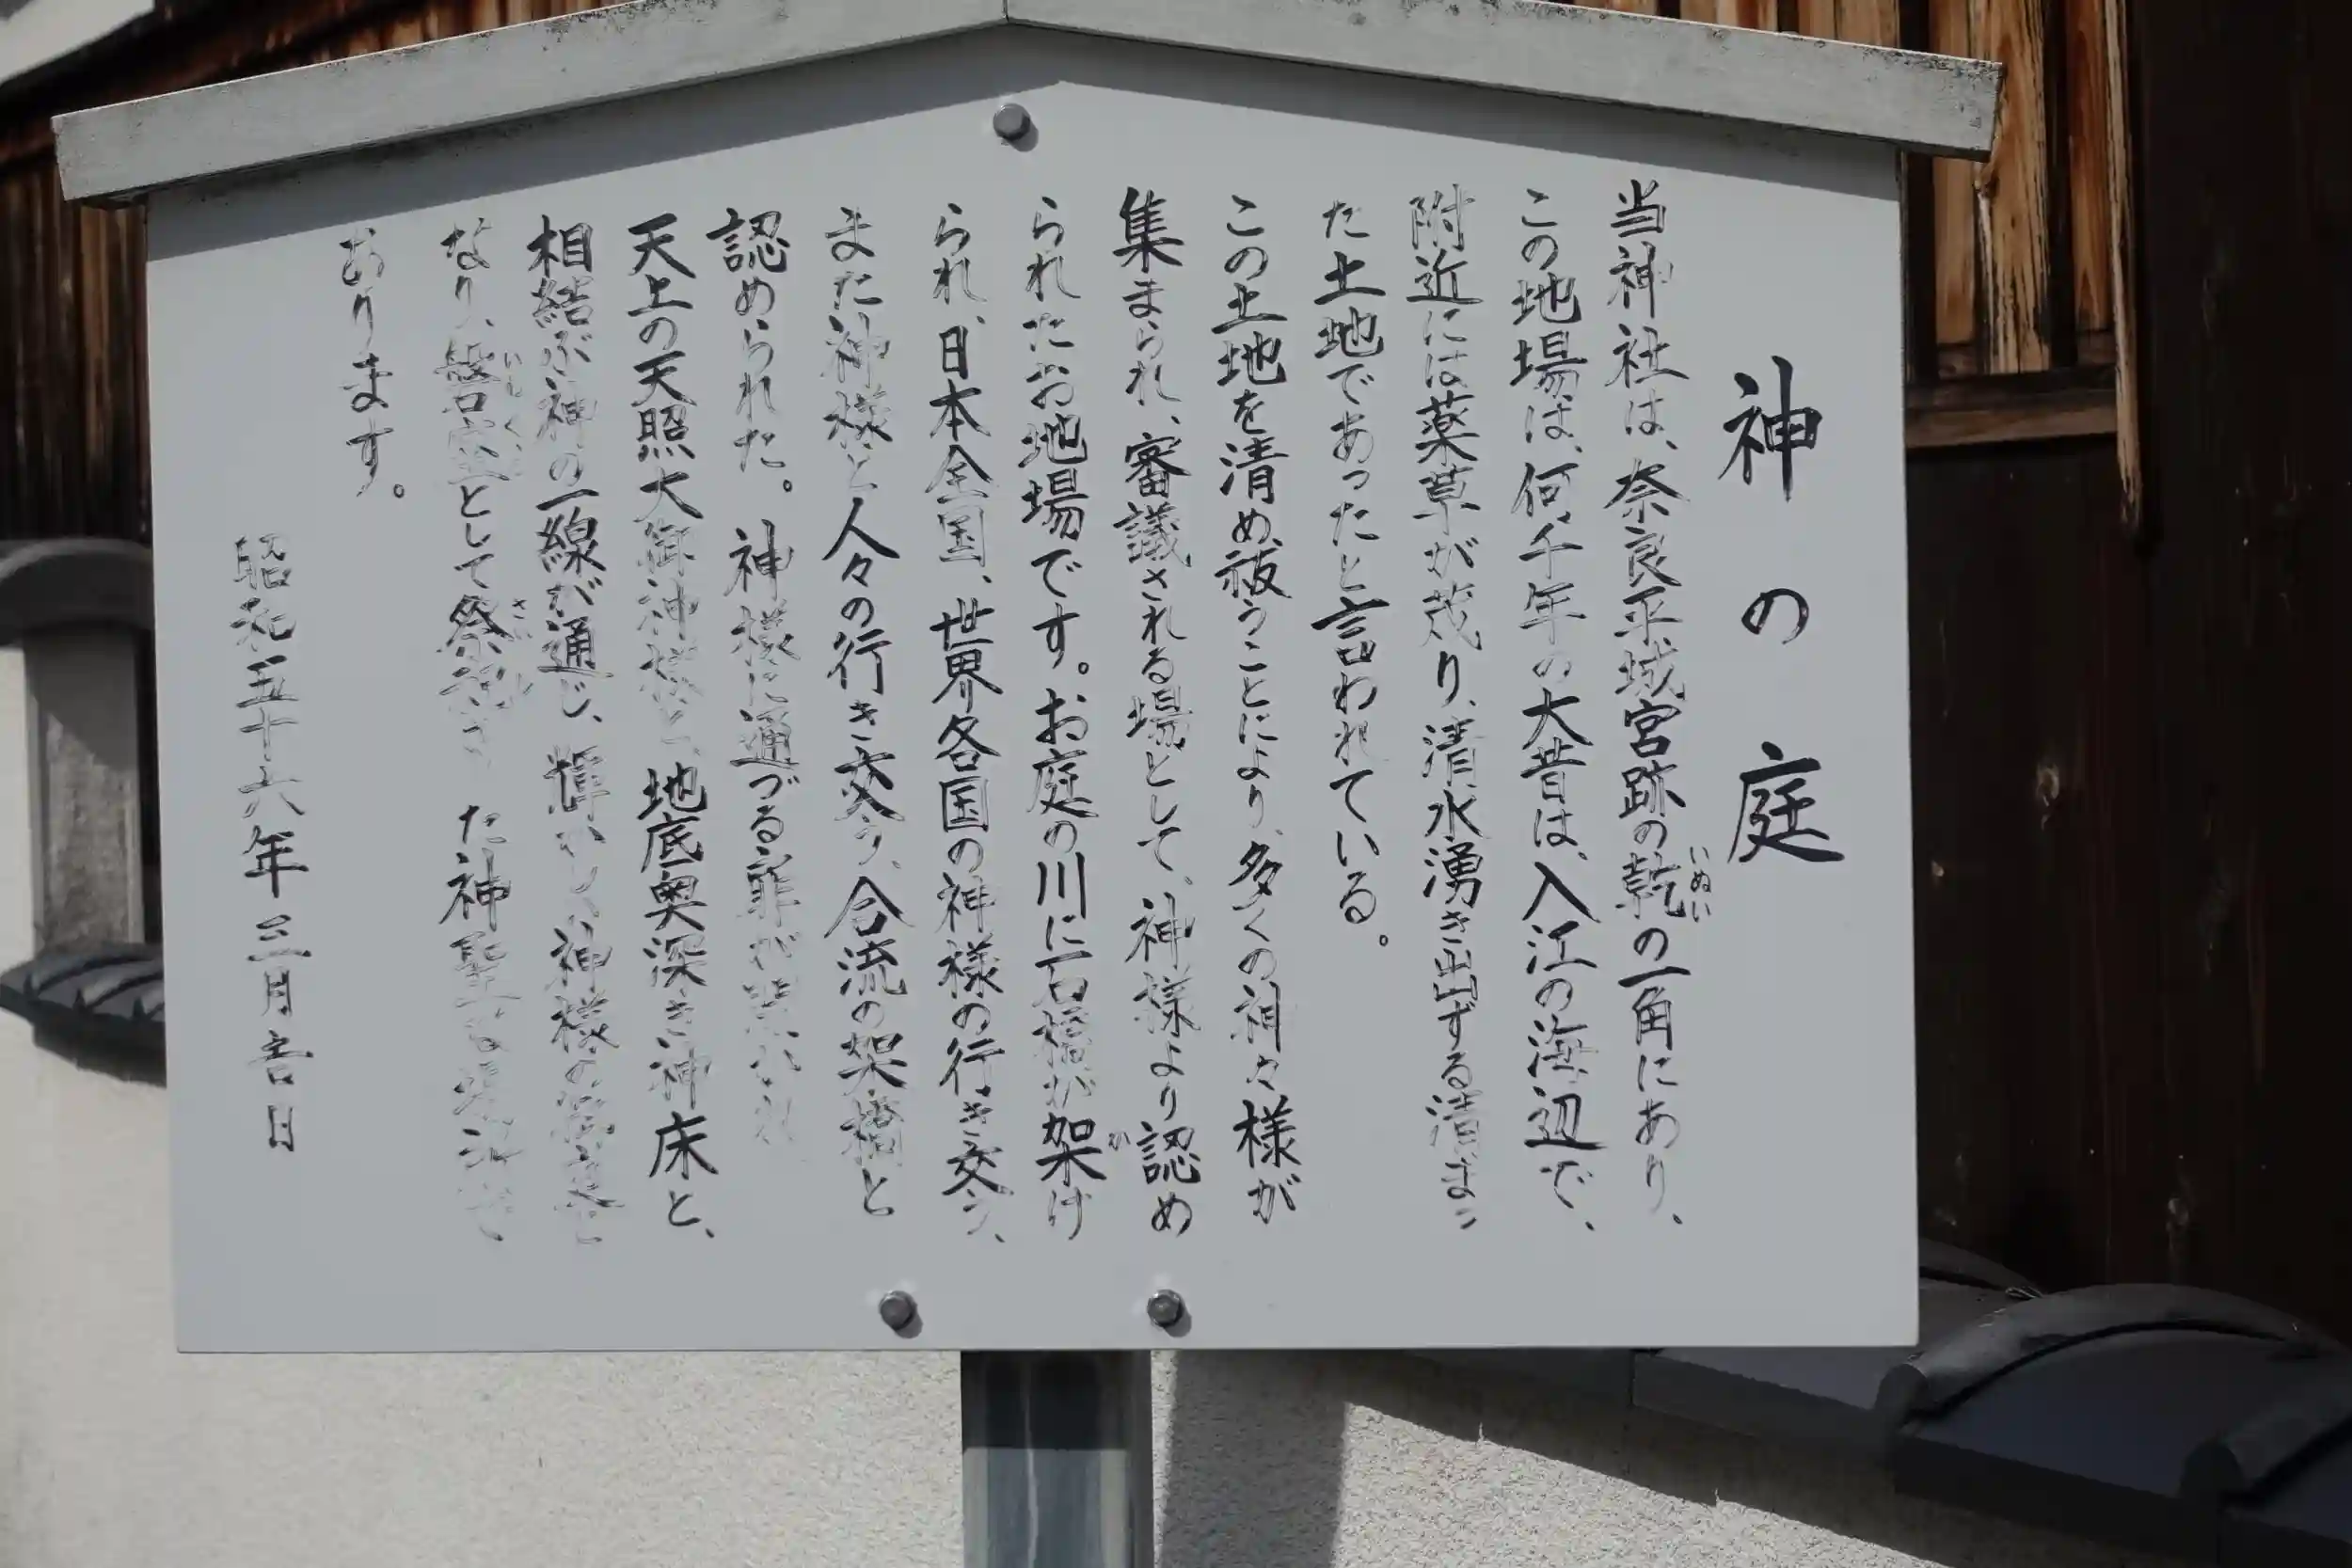 神の庭
当神社は、奈良平城宮跡の乾の一角にあり、
いぬい
この地場は、何千年の大昔は、入江の海辺で、
附近には薬草が茂り、清水湧き出ずる清まっ
た土地であったと言われている。
この土地を清め、祓うことにより、多くの神々様が
集まられ、審議される場として、神様より認め
られたお地場です。お庭の川に石橋が架け
か
られ、日本全国、世界各国の神様の行き交う、
また神様と人々の行き交う、合流の架橋と
認められた。神様に通づる扉が開かれ
天上の天照大御神様と、地底奥深き神床と、
相結ぶ神の一線が通じ、輝かしい神様の
なり、磐座として祭祀された神聖な
いわくら
さい
おります。
昭和五十六年三月吉日